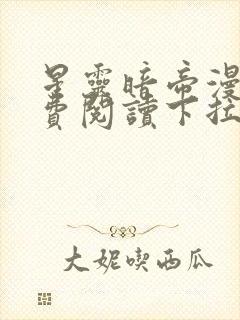 星靈暗帝漫
費閱讀下拉
大妮喫西瓜